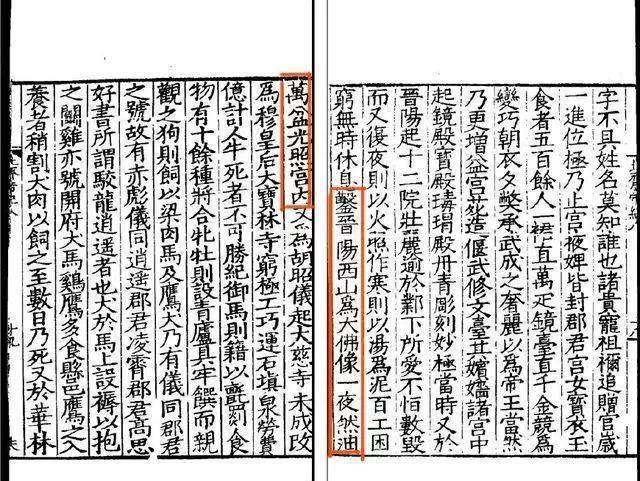 字不具姓名莫知誰也諸貴寵祖禰追贈官歲
一進位極乃止宮掖婢皆封郡君宮女寳衣玉
食者五百餘人一裙直萬疋鏡臺直千金競爲
變巧朝衣夕弊承武成之奢麗以爲帝王當然
乃更增益宮苑造偃武修文臺其嬪嬙諸宮中
起鏡殿寳殿瑇瑁殿丹青彫刻妙極當時又於
晉陽起十二院壯麗逾於鄴下所愛不恒數毀
而又復夜則以火照作寒則以湯爲泥百工困
窮無時休息鑿晉陽西山爲大佛像一夜然油
萬盆光照宮内又爲胡昭儀起大慈寺未成改
爲穆皇后大寳林寺窮極工巧運石填泉勞費
億計人牛死者不可勝紀御馬則籍以氈罽食
物有十餘種將合牝牡則設青廬具牢饌而親
觀之狗則飼以粱肉馬及鷹犬乃有儀同郡君
之號故有赤彪儀同逍遥郡君凌霄郡君高思
好書所謂駮龍逍遥者也犬於馬上設褥以抱
之鬬雞亦號開府犬馬雞鷹多食縣邑鷹之入
養者稍割犬肉以飼之至數日乃死又於華林